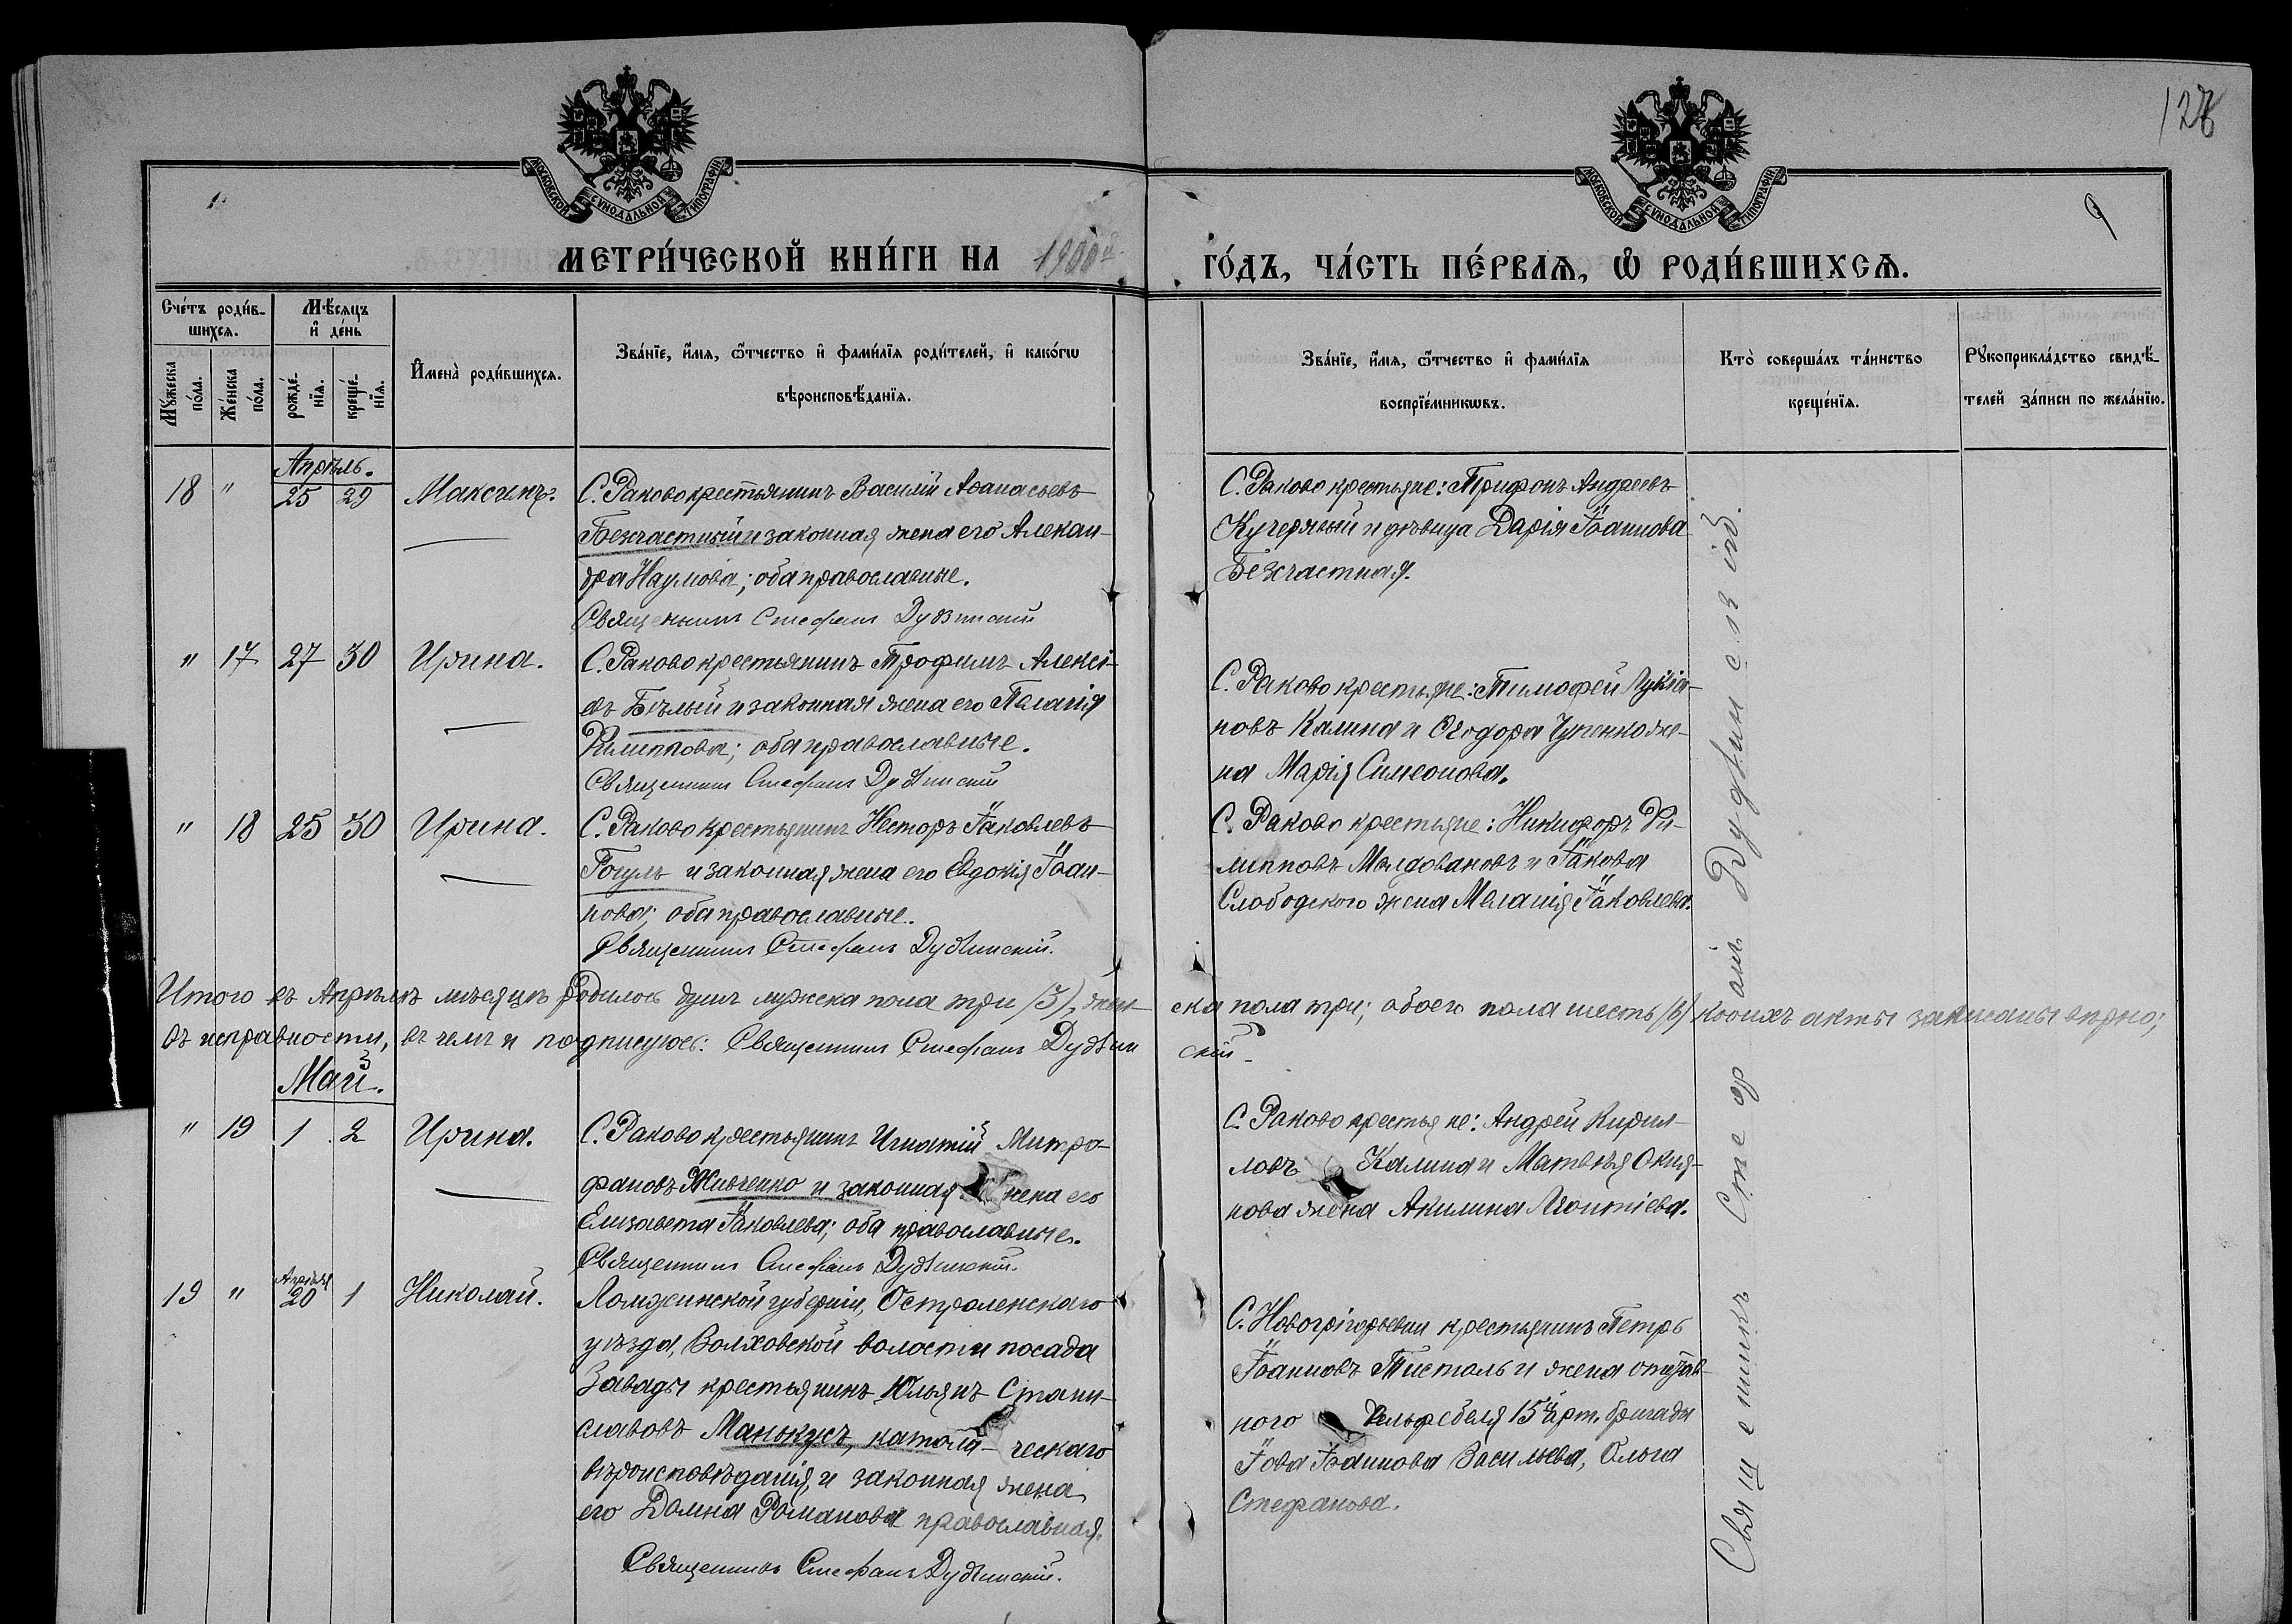 128
1.
9
МОСКОВСКОЙ СѴНОДАЛЬНОЙ ТИПОГРАФІИ
МОСКОВСКОЙ СѴНОДАЛЬНОЙ ТИПОГРАФІИ
МЕТРИ́ЧЕСКОЙ КНИ́ГИ НА 1900й
ГО́ДЪ, ЧА́СТЬ ПЕ́РВАѦ, Ѡ҆ РОДИ́ВШИХСѦ.
Сче́тъ роди́в-
шихсѧ.
Мѣ́сѧцъ
и҆ де́нь
Мꙋ́жеска по́ла.
Же́нска по́ла.
рожде́-нїѧ.
креще́-нїѧ.
И҆мена̀ роди́вшихсѧ.
Зва́нїе, и҆́мѧ, ѻ҆́тчество и҆ фами́лїѧ роди́телей, и҆ како́гѡ
вѣроисповѣ́данїѧ.
Зва́нїе, и҆́мѧ, ѻ҆́тчество и҆ фами́лїѧ
воспрїе́мникѡвъ.
Кто̀ соверша́лъ та́инство
креще́нїѧ.
Рꙋкоприкла́дство свидѣ́-
телей за́писи по жела́нїю.
Апрѣль.
18 " 25 29 Максимъ.
С. Раково крестьянинъ Василій Аѳанасьевъ
Безчастный и законная жена его Алексан-
дра Наумова; оба православные.
Священникъ Стефанъ Дудзинскій
С. Раково крестьяне: Трифонъ Андреевъ
Кучерявый и дѣвица Дарія Іоаннова
Безчастная.
" 17 27 30 Ирина.
С. Раково крестьянинъ Трофимъ Алексѣ-
евъ Бѣлый и законная жена его Пелагія
Филиппова; оба православные.
Священникъ Стефанъ Дудзинскій
С. Раково крестьяне: Тимофей Лукіа-
новъ Калина и Ѳеодора Чупенко же-
на Марія Симеонова.
" 18 25 30 Ирина.
С. Раково крестьянинъ Несторъ Іаковлевъ
Гогуль и законная жена его Евдокія Іоан-
нова; оба православные.
Священникъ Стефанъ Дудзинскій.
С. Раково крестьяне: Никифоръ Фи-
липповъ Молдовановъ и Іакова
Слободского жена Меланія Іаковлева.
Итого въ Апрѣлѣ мѣсяцѣ родилось душъ мужеска пола три /3/, жен- ска пола три; обоего пола шесть /6/ коихъ акты записаны вѣрно;
въ исправности, въ чемъ и подписуюсь: Священникъ Стефанъ Дудзин скій
Май.
" 19 1 2 Ирина.
С. Раково крестьянинъ Игнатій Митро-
фановъ Жильченко и законная жена его
Елизавета Іаковлева; оба православные.
Священникъ Стефанъ Дудзинскій.
С. Раково крестьяне: Андрей Кирил-
ловъ Калина и Матвѣя
нова жена Акилина Леонтіева.
19 " Апрѣля 20 1 Николай.
Ломжинской губерніи, Остроленскаго
уѣзда, Волховской волости посада
Завады крестьянинъ Юльянъ Стани-
славовъ Манькусъ, католи- ческаго
вѣроисповѣданія, и законная жена
его Домна Романова православная.
Священникъ Стефанъ Дудзинскій.
С. Новогрігорьевки крестьянинъ Петръ
Іоанновъ Тистоль и жена отстав-
ного Фельдфебеля 15й арт. бригады
Іова Іоаннова Васильева, Ольга
Стефанова.
Священникъ Стефанъ Дудзинскій